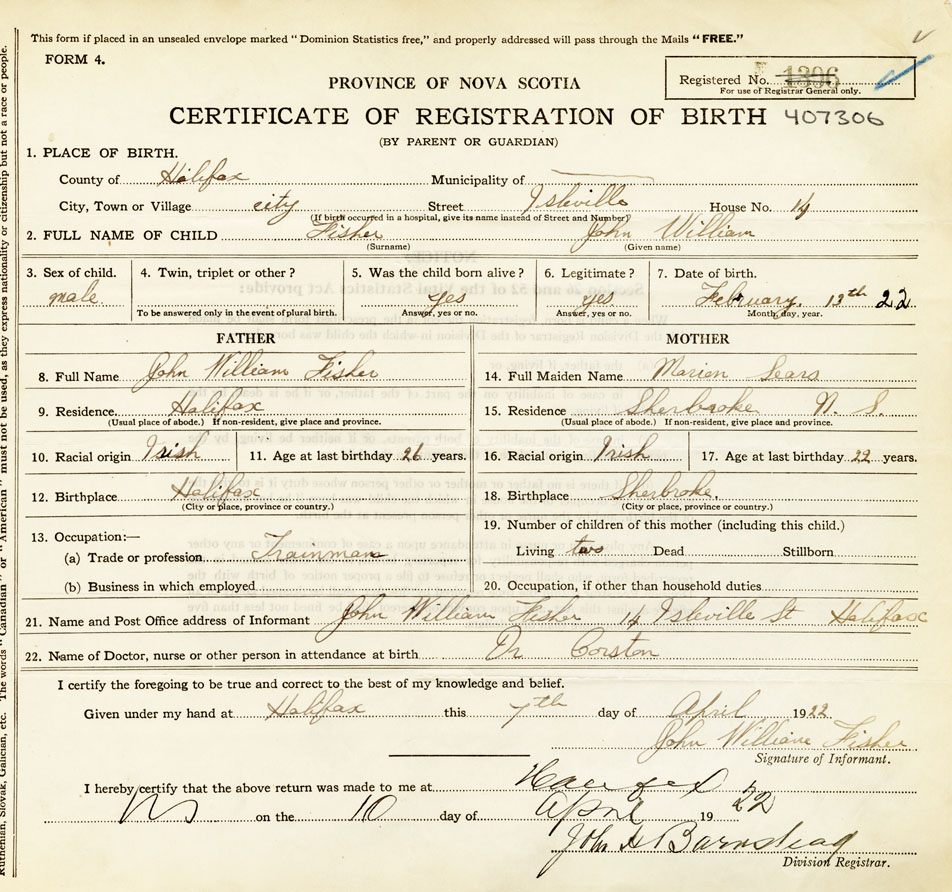 This form if placed in an unsealed envelope marked "Dominion Statistics free," and properly addressed will pass through the Mails "FREE."
FORM 4.
Registered No. 1306
For use of Registrar General only.
PROVINCE OF NOVA SCOTIA
CERTIFICATE OF REGISTRATION OF BIRTH 407306
(BY PARENT OR GUARDIAN)
1. PLACE OF BIRTH.
County of Halifax Municipality of
City, Town or Village city Street Isleville House No. 14
(If birth occurred in a hospital, give its name instead of Street and Number)
2. FULL NAME OF CHILD Fisher John William
(Surname) (Given name)
3. Sex of child. 4. Twin, triplet or other? 5. Was the child born alive? 6. Legitimate? 7. Date of birth.
male Yes yes February 13th 22
To be answered only in the event of plural birth. Answer, yes or no. Answer, yes or no. Month, day, year.
FATHER MOTHER
8. Full Name John William Fisher 14. Full Maiden Name Marion Sears
9. Residence. Halifax 15. Residence Sherbroke N. S.
(Usual place of abode.) If non-resident, give place and province. (Usual place of abode.) If non-resident, give place and province.
10. Racial origin Irish 11. Age at last birthday 26 years. 16. Racial origin Irish 17. Age at last birthday 22 years.
12. Birthplace Halifax 18. Birthplace Sherbroke.
(City or place, province or country.) (City or place, province or country.)
13. Occupation:— 19. Number of children of this mother (including this child.)
(a) Trade or profession Trainman Living two Dead Stillborn
(b) Business in which employed 20. Occupation, if other than household duties
21. Name and Post Office address of Informant John William Fisher 14 Isleville St Halifax
22. Name of Doctor, nurse or other person in attendance at birth Dr Corston
I certify the foregoing to be true and correct to the best of my knowledge and belief.
Given under my hand at Halifax this 7th day of April 1922
John William Fisher
Signature of Informant.
I hereby certify that the above return was made to me at Halifax
NS on the 10 day of April 19 22
John H Barnstead
Division Registrar.
Ruthenian, Slovak, Galician, etc. The words "Canadian" or "American" must not be used, as they express nationality or citizenship but not a race or people.